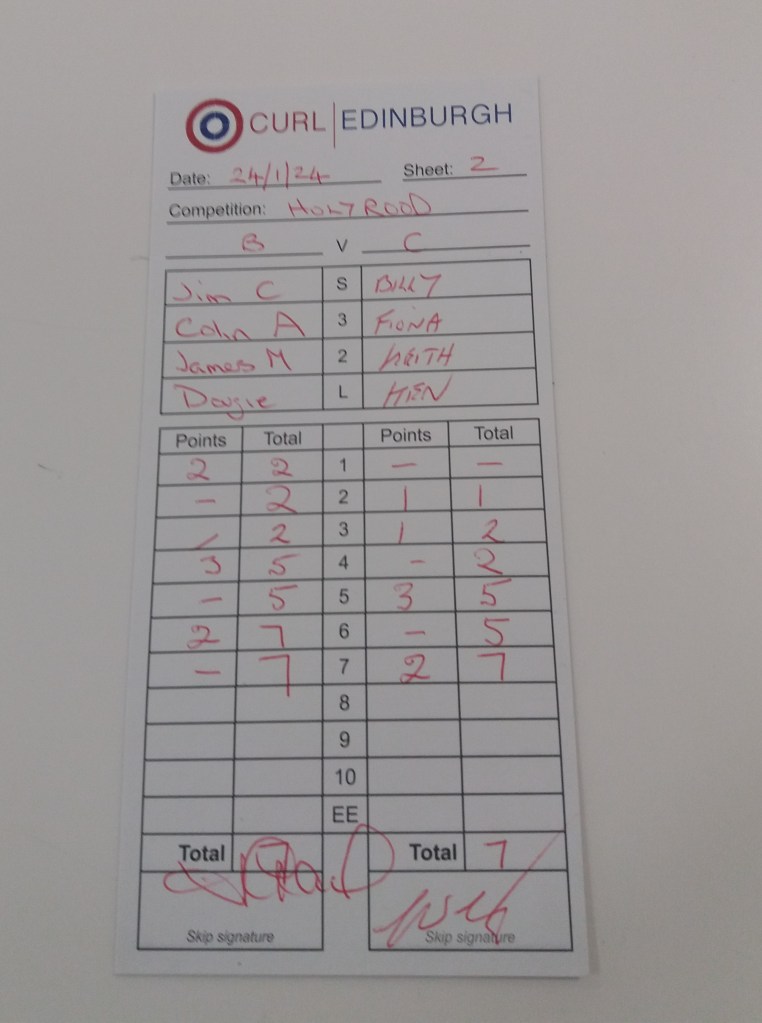 CURL | EDINBURGH
Date: 24/1/24 Sheet: 2
Competition: HOLYROOD
B V C
Jim C S BILLY
Colin A 3 FIONA
James M 2 KEITH
Dougie L HIEN
Points Total Points Total
2 2 1 — —
– 2 2 1 1
– 2 3 1 2
3 5 4 – 2
– 5 5 3 5
2 7 6 – 5
– 7 7 2 7
8
9
10
EE
Total 7 Total 7
Skip signature Skip signature